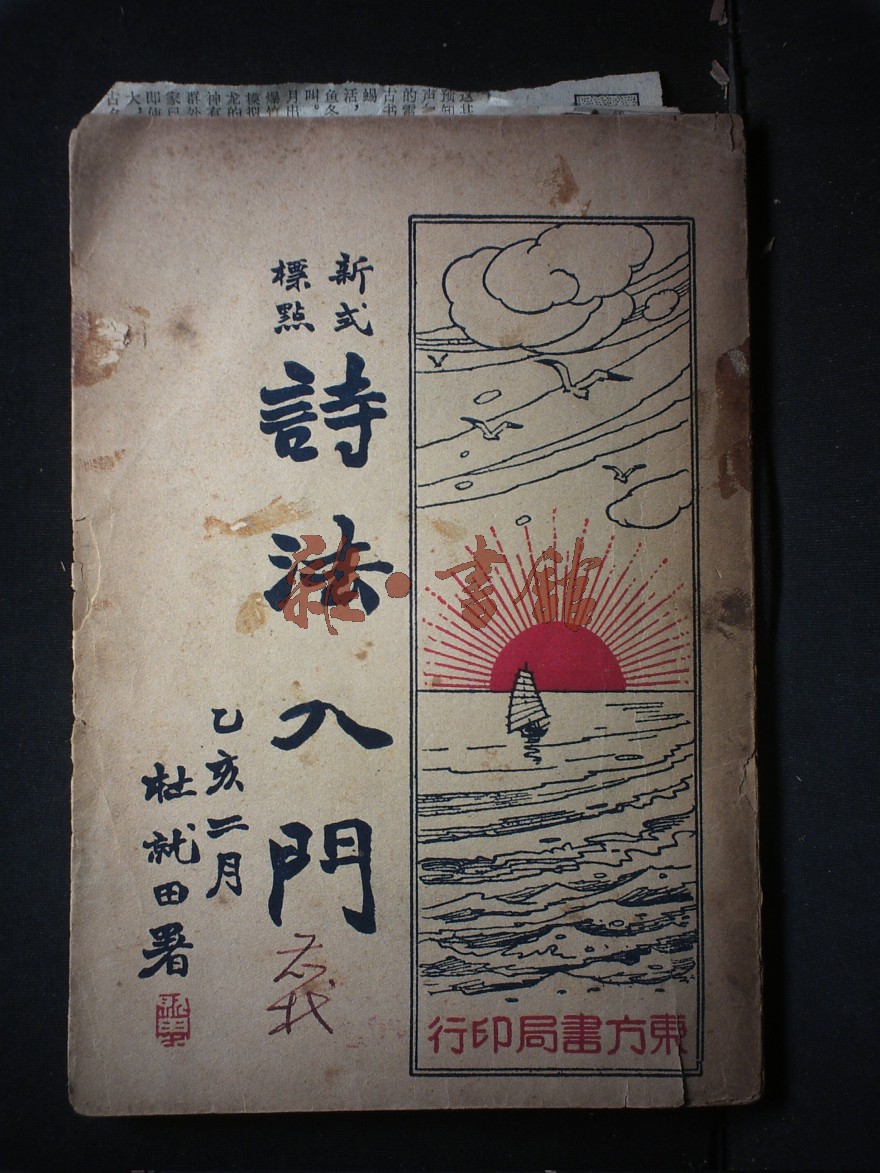 新式
標點
詩法入門
乙亥二月
杜就田署
東方書局印行
雜·書館